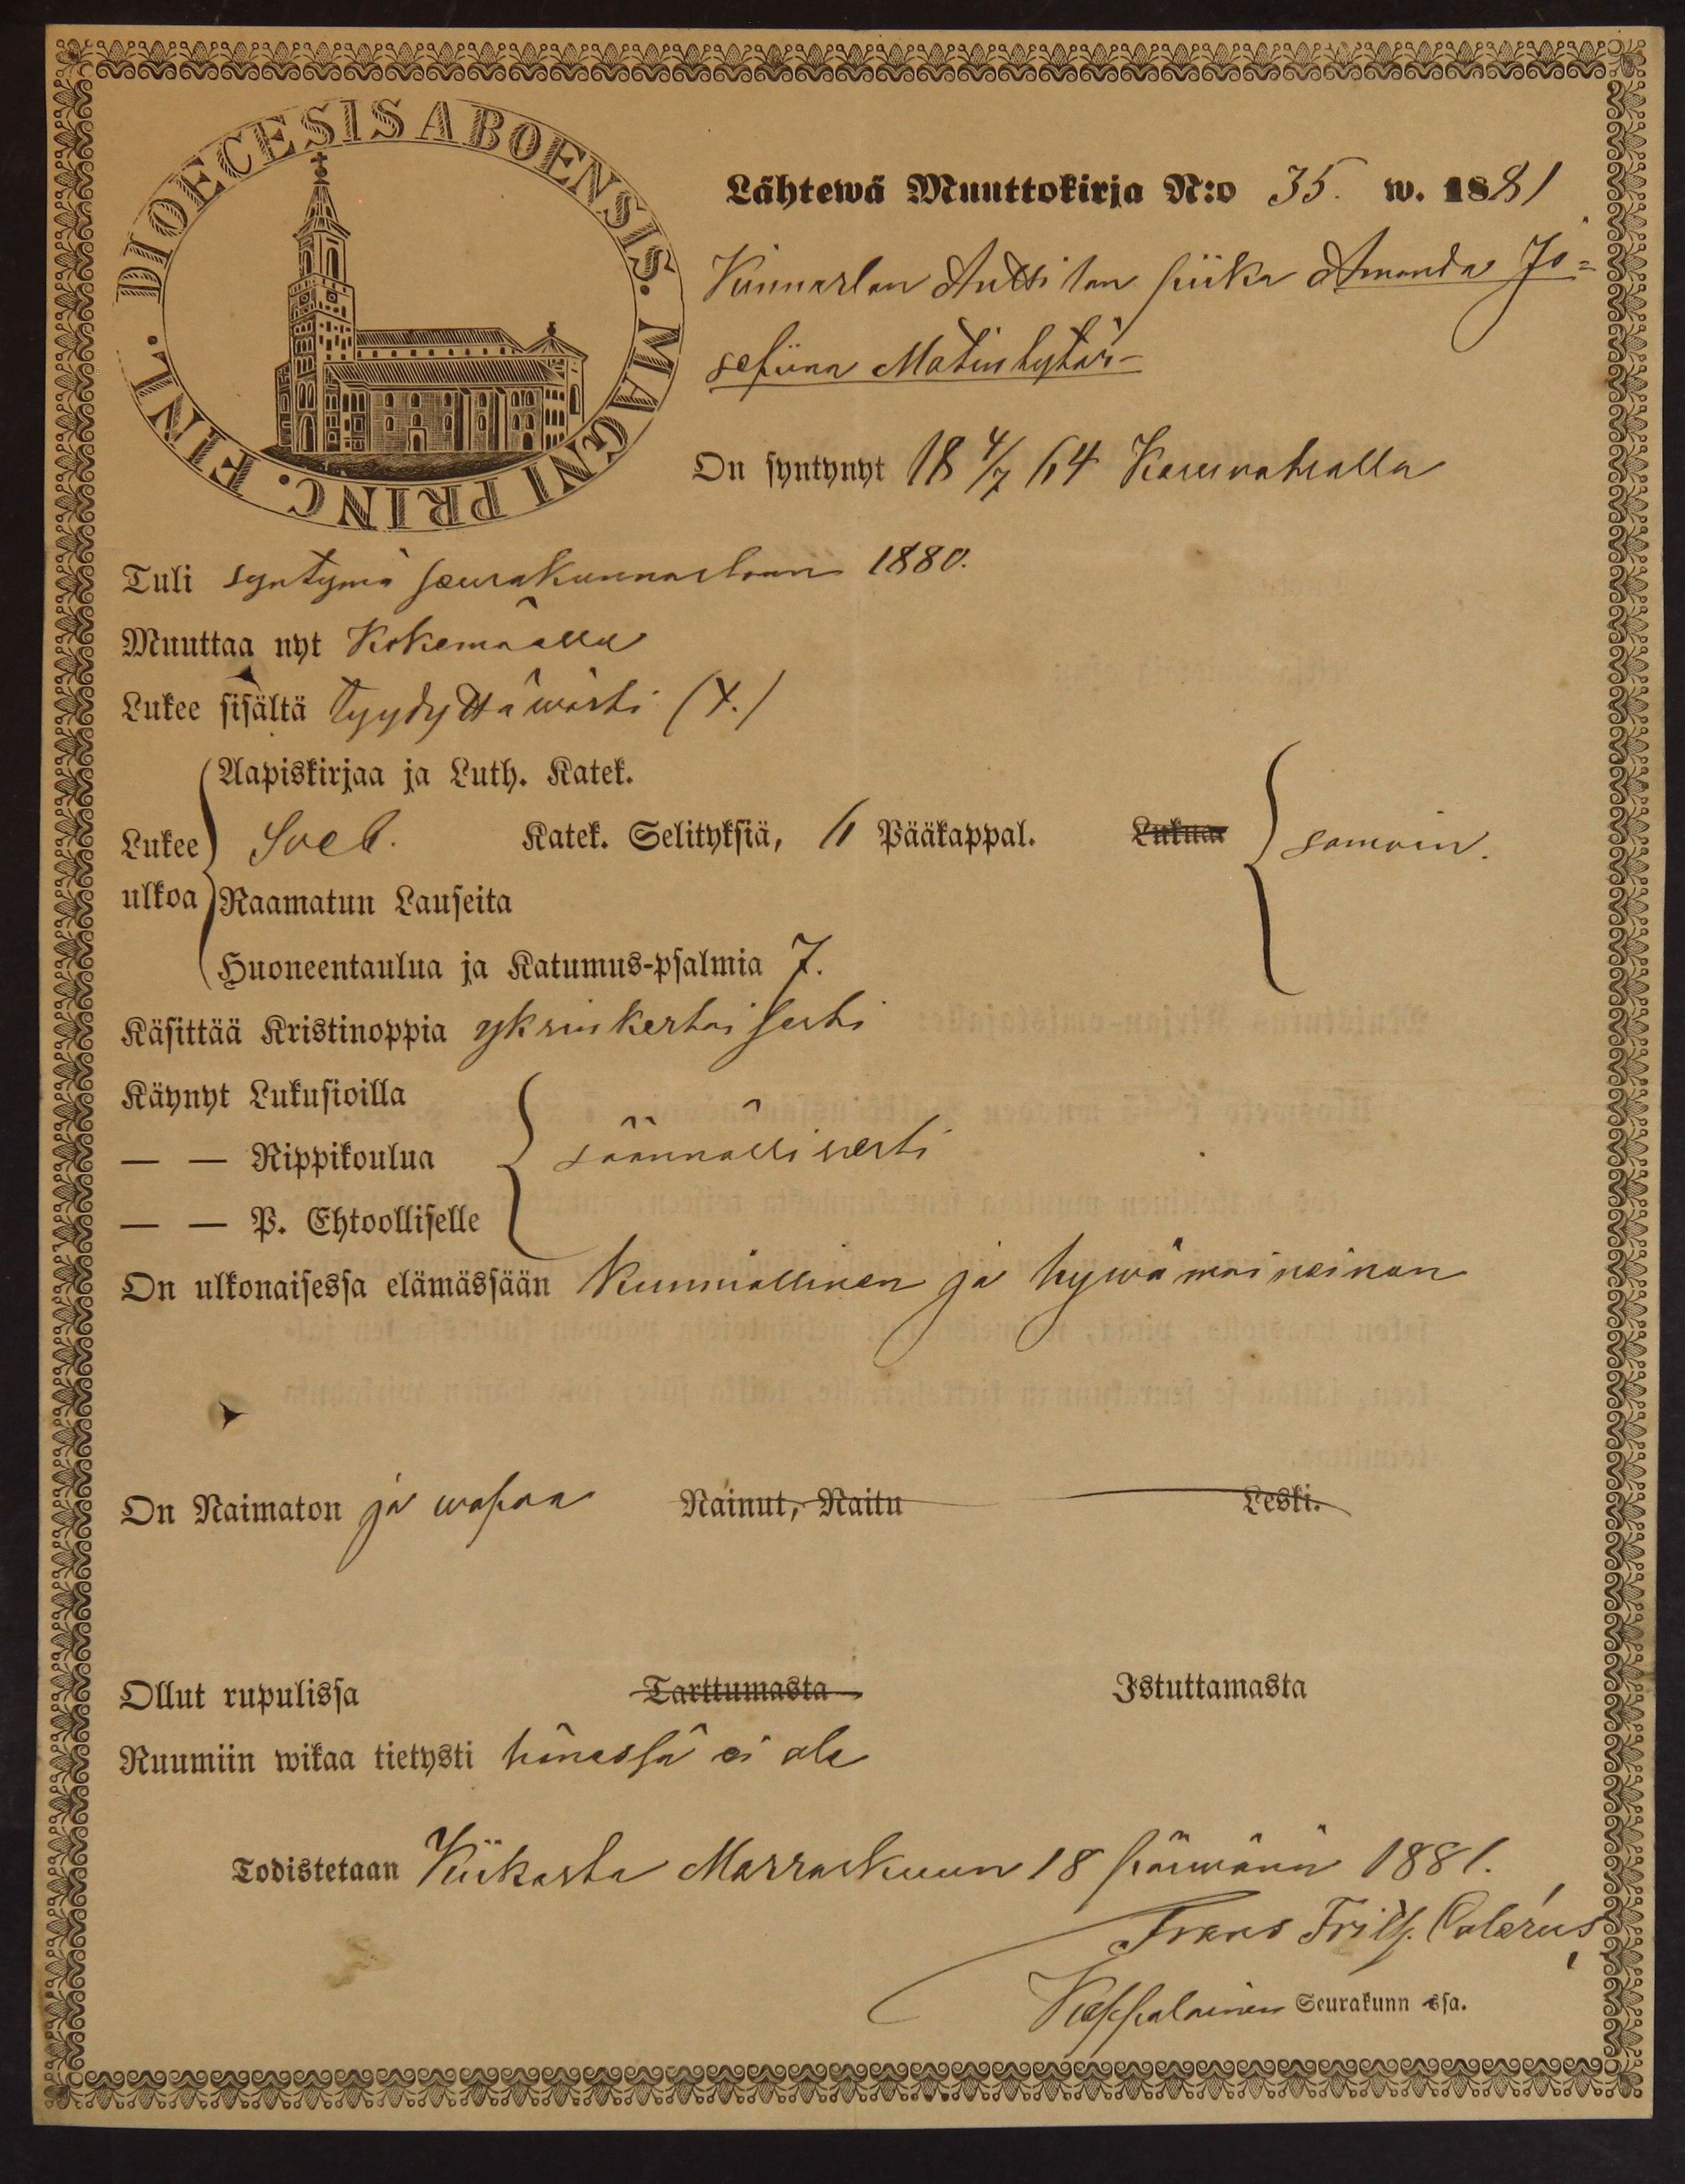 DIOECESIS ABOENSIS. MAGNI PRINC. FINL.
Lähtewä Muuttokirja N:o 35. w. 1881
Antti lan piika Amanda Jo=
sefiina Matintytär-
On syntynyt 18 4/7 64
Tuli syntymä seurakunnastaan 1880.
Muuttaa nyt Kokemäelle
Lukee sisältä tyydyttäwästi
Aapiskirjaa ja Luth. Katek.
Lukee Sveb. Katek. Selityksiä, 6 Pääkappal. Lukua samoin.
ulkoa Raamatun Lauseita
Huoneentaulua ja Katumus-psalmia 7.
Käsittää Kristinoppia yksinkertaisesti
Käynyt Lukusioilla
— — Rippikoulua säännöllisesti
— — P. Ehtoolliselle
On ulkonaisessa elämässään kunniallinen ja hywämaineinen
On Naimaton ja wapaa Nainut, Naitu Leski.
Ollut rupulissa Tarttumasta Istuttamasta
Ruumiin wikaa tietysti hänessä ei ole
Todistetaan Kiikasta Marraskuun 18 päiwänä 1881.
Frans Frith. Calerius
Kappalainen Seurakunn ssa.